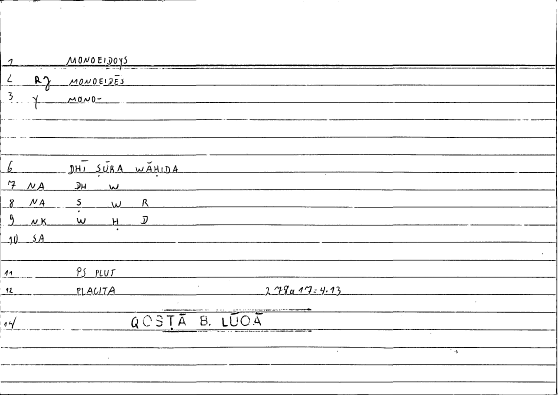 1 MONOEIDOYS
2 Rz MONOEIDĒS
3 y MONO-
6 DHĪ ṢŪRA WĀḤIDA
7 NA DH W
8 NA Ṣ W R
9 NK W Ḥ D
10 SA
11 PS PLUT
12 PLACITA 278a17=4.13
14/ QOSṬĀ B. LŪQĀ